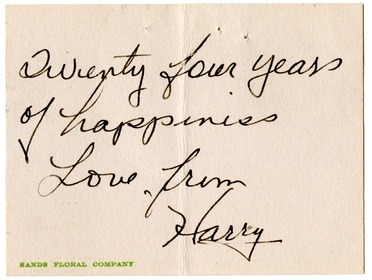 Twenty four years
of happiness
Love from
Harry
SANDS FLORAL COMPANY